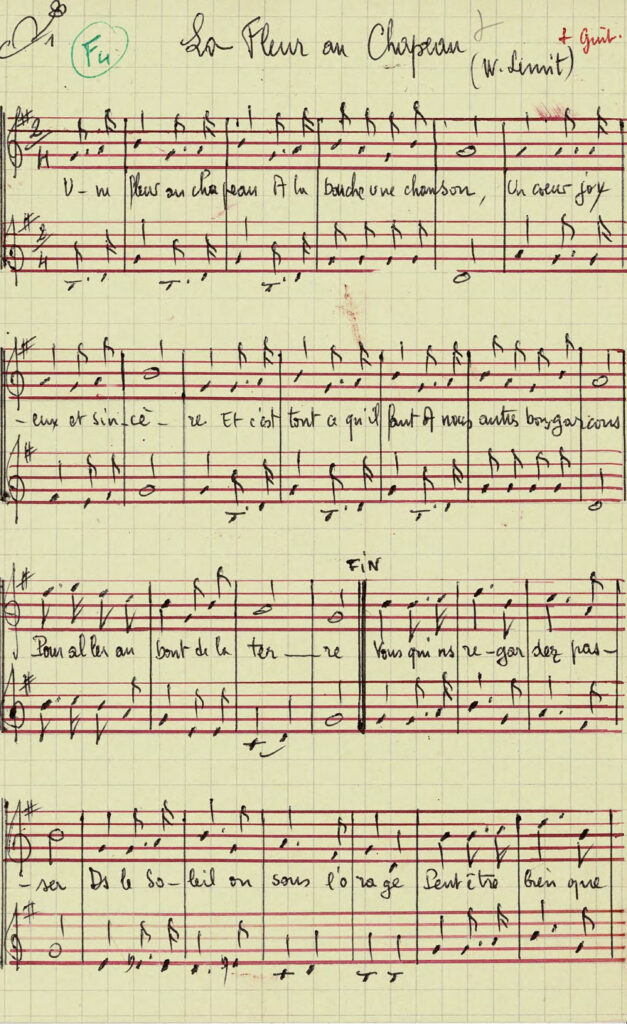 1 Fu La Fleur au Chapeau + Guit.
(W. Lemit)
2/4 U-ne fleur au chapeau A la bouche une chanson, Un cœur joy
2/4
-eux et sin-cè-re Et c'est tout ce qu'il faut A nous autres bons garçons
FIN
Pour aller au bout de la ter__re Vous qui ns re-gar dez pas-
-ser Ds le So-leil ou sous l'orage Peut être bien que